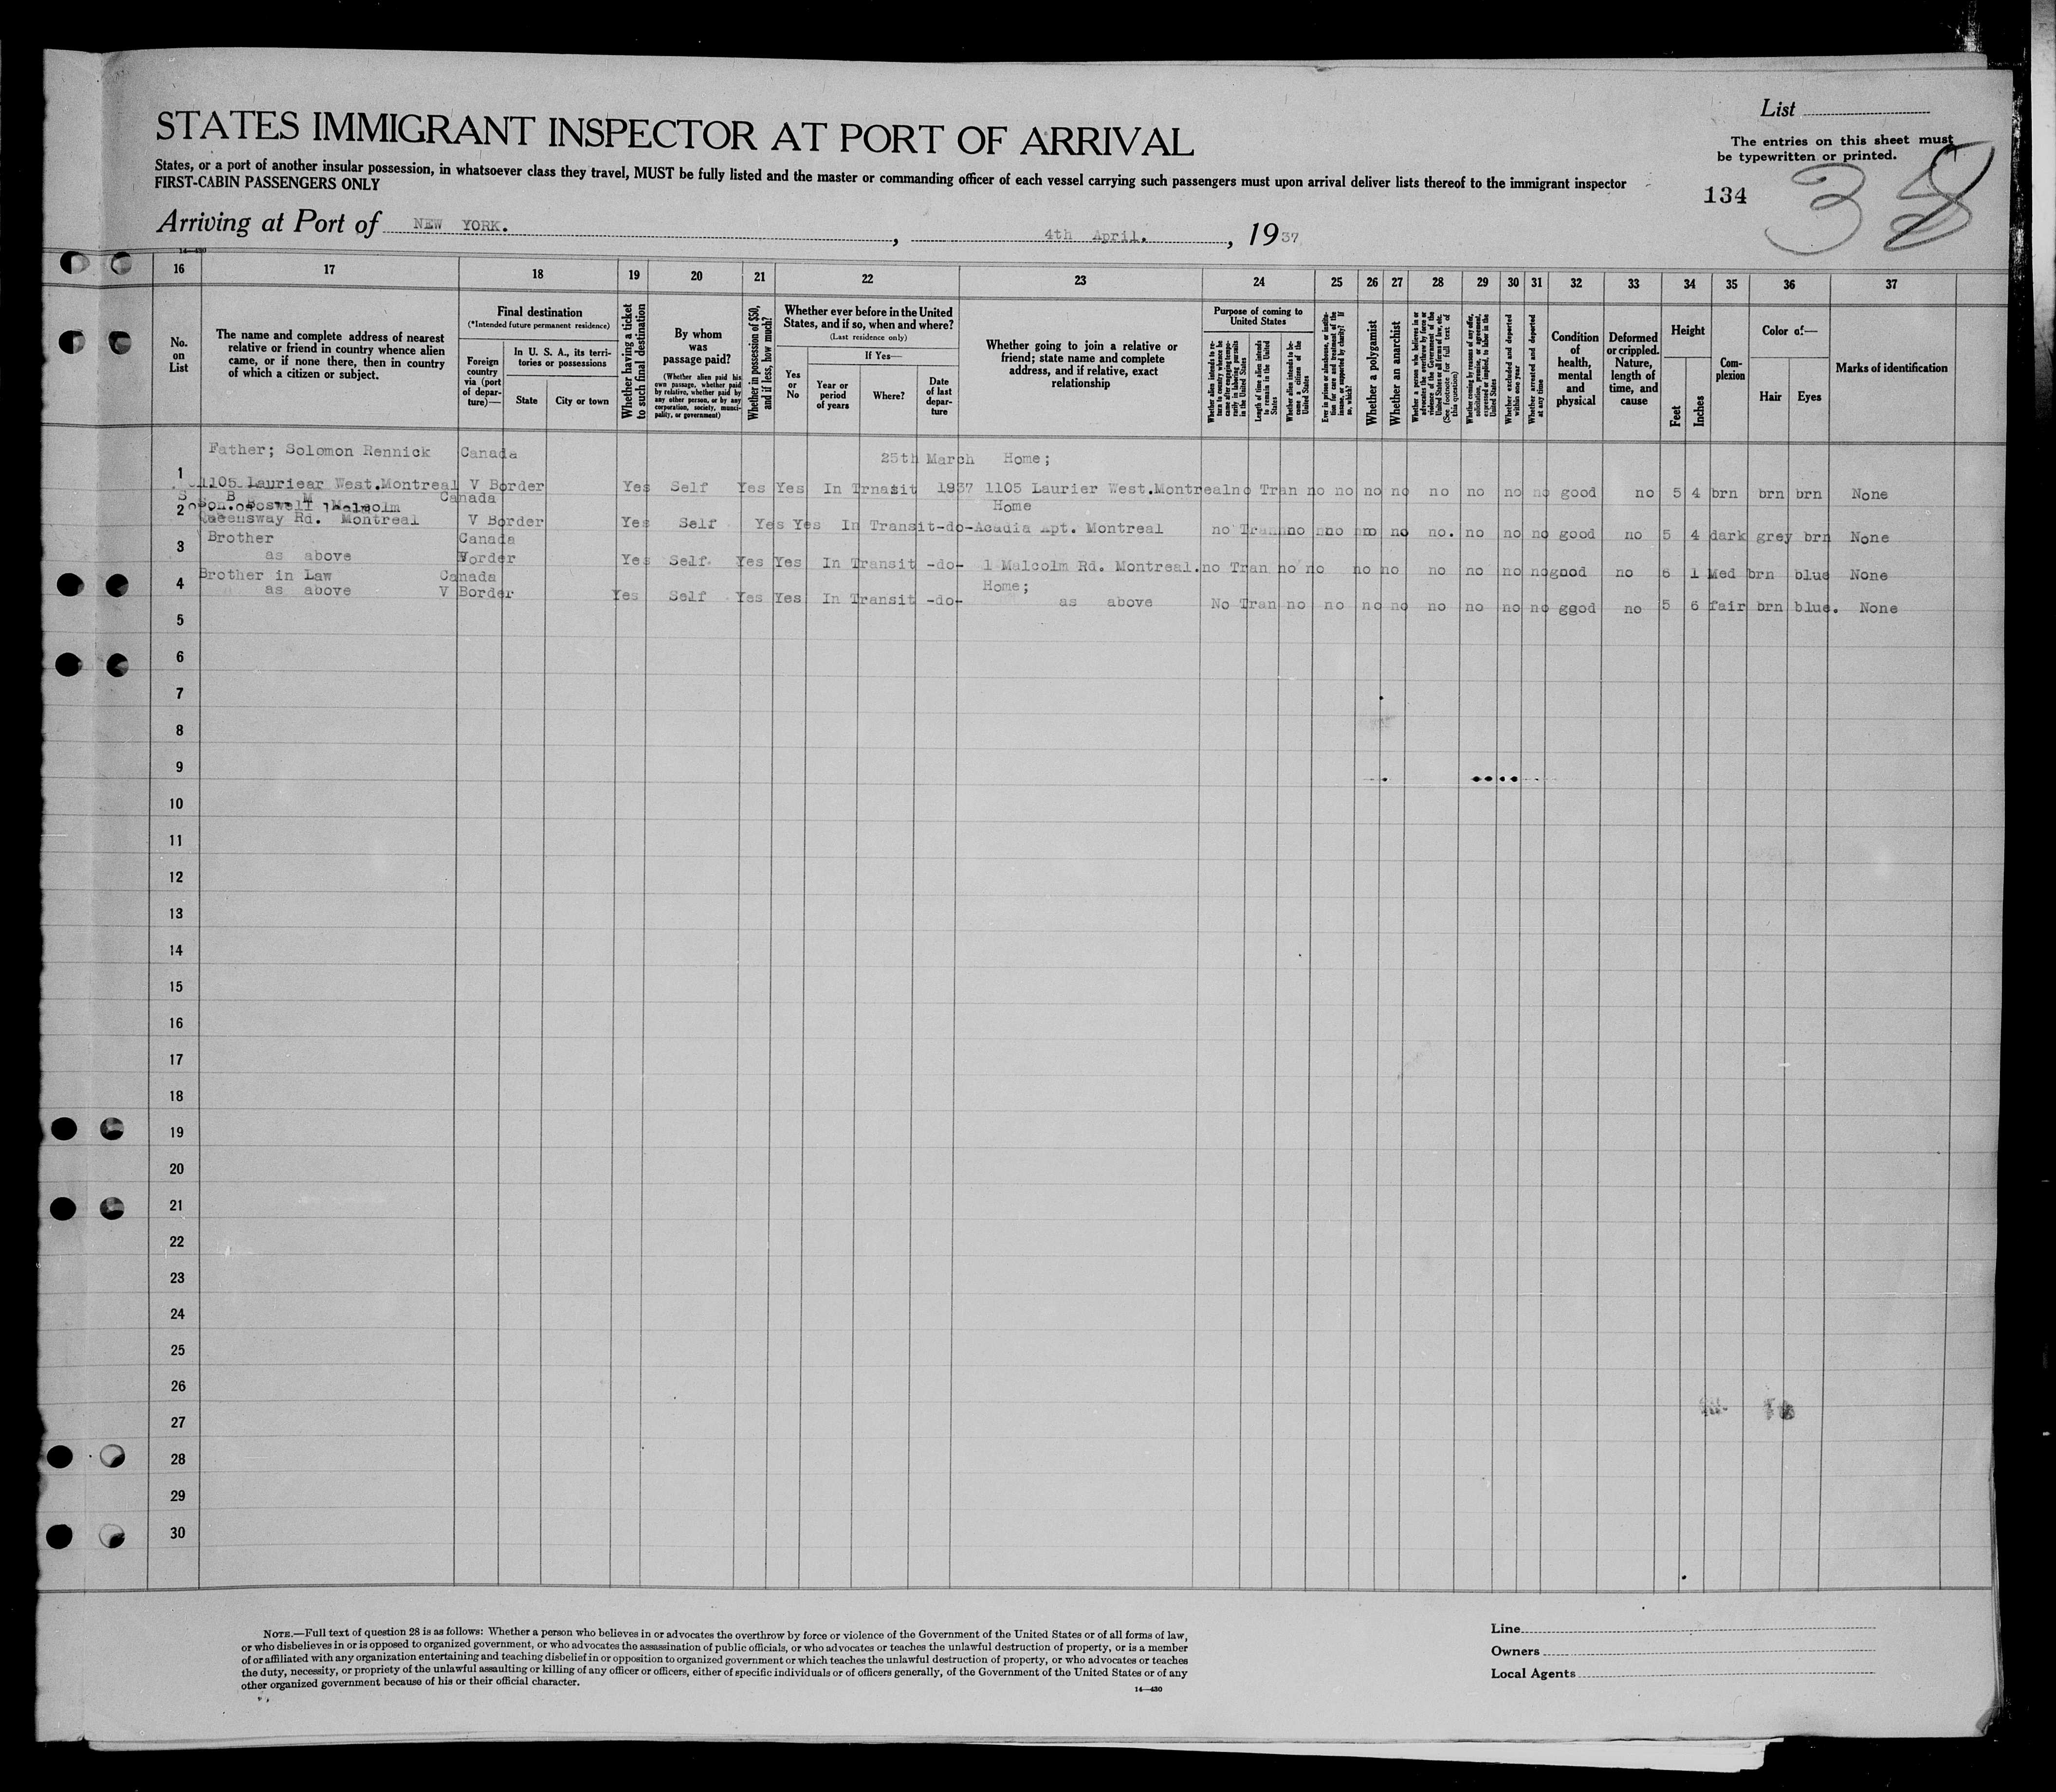 List
The entries on this sheet must
be typewritten or printed.
STATES IMMIGRANT INSPECTOR AT PORT OF ARRIVAL
States, or a port of another insular possession, in whatsoever class they travel, MUST be fully listed and the master or commanding officer of each vessel carrying such passengers must upon arrival deliver lists thereof to the immigrant inspector
FIRST-CABIN PASSENGERS ONLY
134
38
Arriving at Port of NEW YORK. , 4th April. , 1937
14—430
16 17 18 19 20 21 22 23 24 25 26 27 28 29 30 31 32 33 34 35 36 37
No. on List
The name and complete address of nearest relative or friend in country whence alien came, or if none there, then in country of which a citizen or subject.
Final destination
(*Intended future permanent residence)
Foreign country via (port of departure)—
In U. S. A., its territories or possessions
State
City or town
Whether having a ticket to such final destination
By whom was passage paid?
(Whether alien paid his own passage, whether paid by relative, whether paid by any other person, or by any corporation, society, municipality, or government)
Whether in possession of $50, and if less, how much?
Whether ever before in the United States, and if so, when and where?
(Last residence only)
Yes or No
If Yes—
Year or period of years
Where?
Date of last departure
Whether going to join a relative or friend; state name and complete address, and if relative, exact relationship
Purpose of coming to United States
Whether alien intends to return to country whence he came after engaging temporarily in laboring pursuits in the United States
Length of time alien intends to remain in the United States
Whether alien intends to become a citizen of the United States
Ever in prison or almshouse, or institution for care and treatment of the insane, or supported by charity? If so, which?
Whether a polygamist
Whether an anarchist
Whether a person who believes in or advocates the overthrow by force or violence of the Government of the United States or all forms of law, etc. (See footnote for full text of this question)
Whether coming by reason of any offer, solicitation, promise, or agreement, expressed or implied, to labor in the United States
Whether excluded and deported within one year
Whether arrested and deported at any time
Condition of health, mental and physical
Deformed or crippled. Nature, length of time, and cause
Height
Feet
Inches
Complexion
Color of—
Hair
Eyes
Marks of identification
Father; Solomon Rennick Canada 25th March Home;
1 1105 Lauriear West.Montreal V Border Yes Self Yes Yes In Trnasit 1937 1105 Laurier West.Montreal no Tran no no no no no no no no good no 5 4 brn brn brn None
Canada Home
2 Queensway Rd. Montreal V Border Yes Self Yes Yes In Transit-do-Acadia Apt. Montreal no Tran no no no no no. no no no good no 5 4 dark grey brn None
3 Brother Canada
as above Border Yes Self. Yes Yes In Transit -do- 1 Malcolm Rd. Montreal. no Tran no no no no no no no no good no 6 1 Med brn blue None
4 Brother in Law Canada Home;
as above V Border Yes Self Yes Yes In Transit -do- as above No Tran no no no no no no no no ggod no 5 6 fair brn blue. None
5
6
7
8
9
10
11
12
13
14
15
16
17
18
19
20
21
22
23
24
25
26
27
28
29
30
NOTE.—Full text of question 28 is as follows: Whether a person who believes in or advocates the overthrow by force or violence of the Government of the United States or of all forms of law,
or who disbelieves in or is opposed to organized government, or who advocates the assassination of public officials, or who advocates or teaches the unlawful destruction of property, or is a member
of or affiliated with any organization entertaining and teaching disbelief in or opposition to organized government or which teaches the unlawful destruction of property, or who advocates or teaches
the duty, necessity, or propriety of the unlawful assaulting or killing of any officer or officers, either of specific individuals or of officers generally, of the Government of the United States or of any
other organized government because of his or their official character.
14—430
Line
Owners
Local Agents